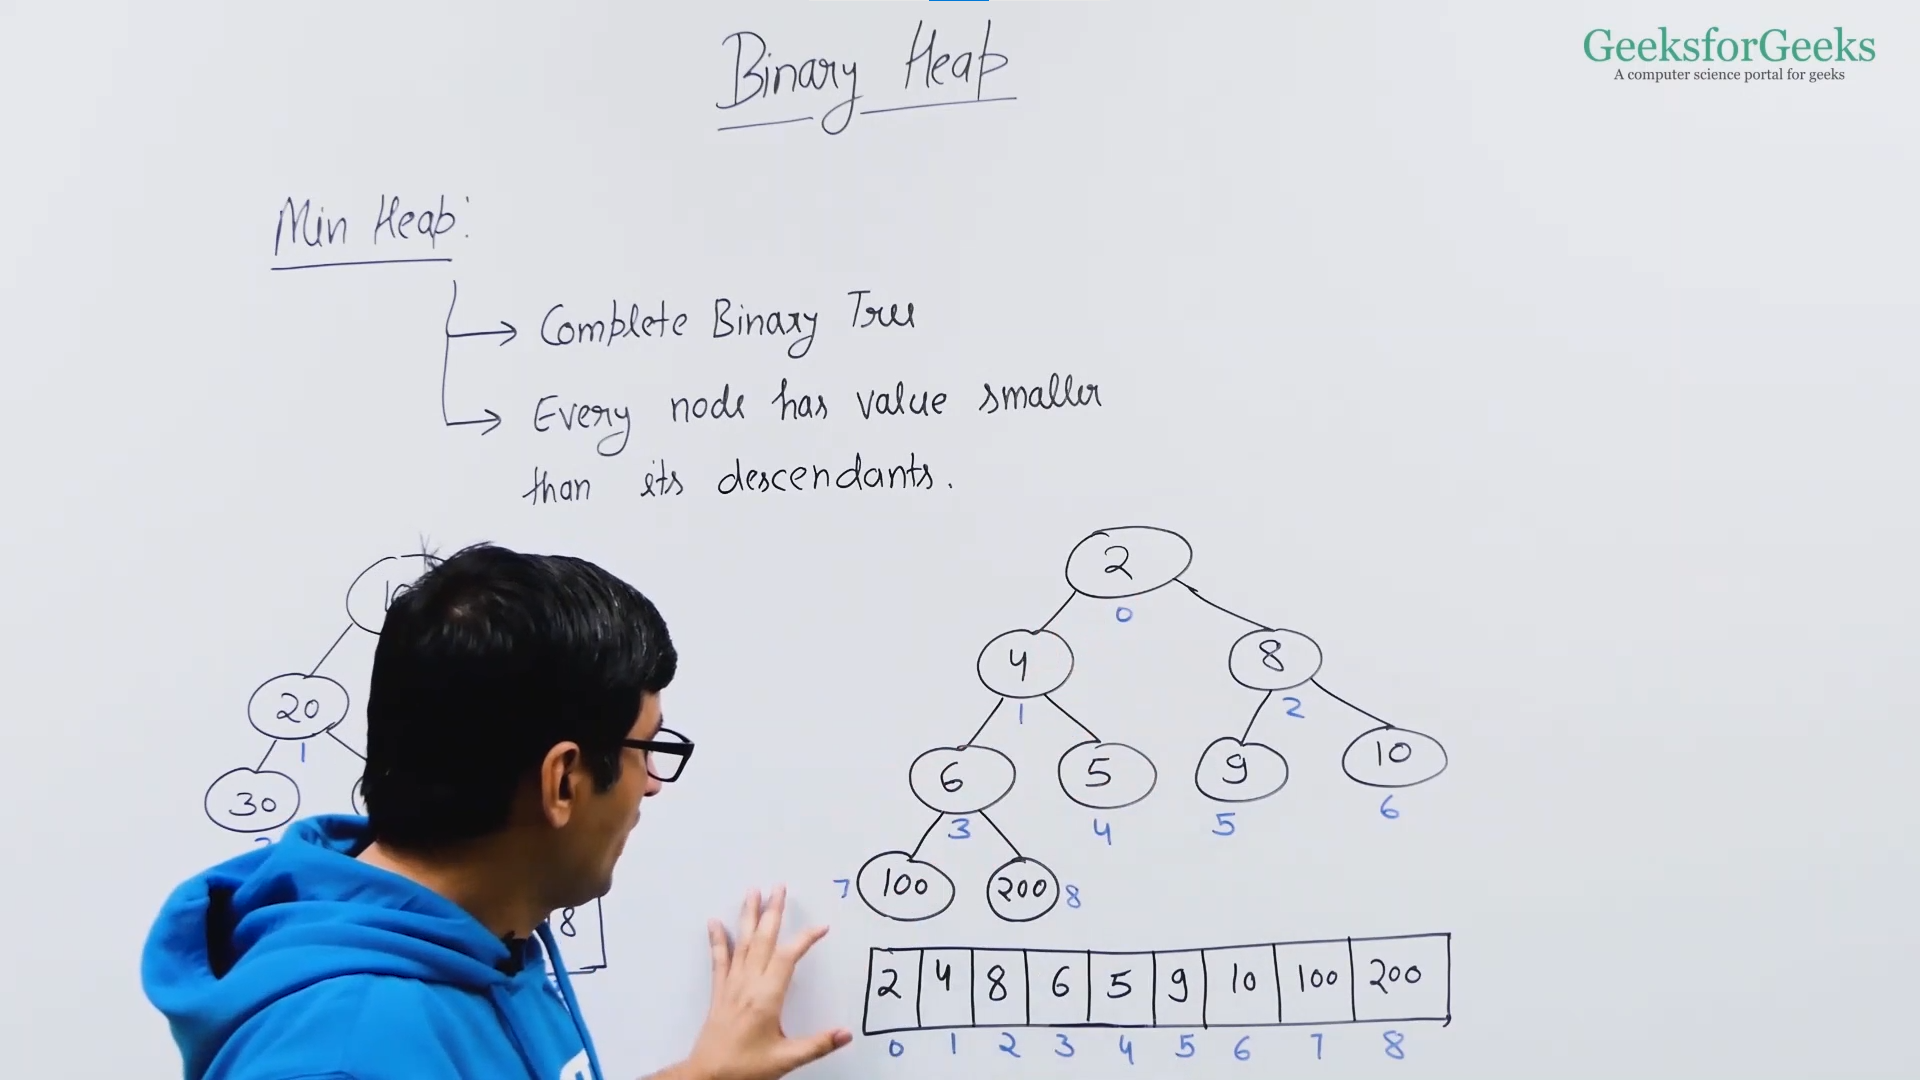 Binary Heap
GeeksforGeeks
A computer science portal for geeks
Min Heap:
Complete Binary Tree
Every node has value smaller
than its descendants.
20
1
30
8
2
0
4
8
1
2
6
5
9
10
3
4
5
6
7
100
200
8
2 4 8 6 5 9 10 100 200
0 1 2 3 4 5 6 7 8